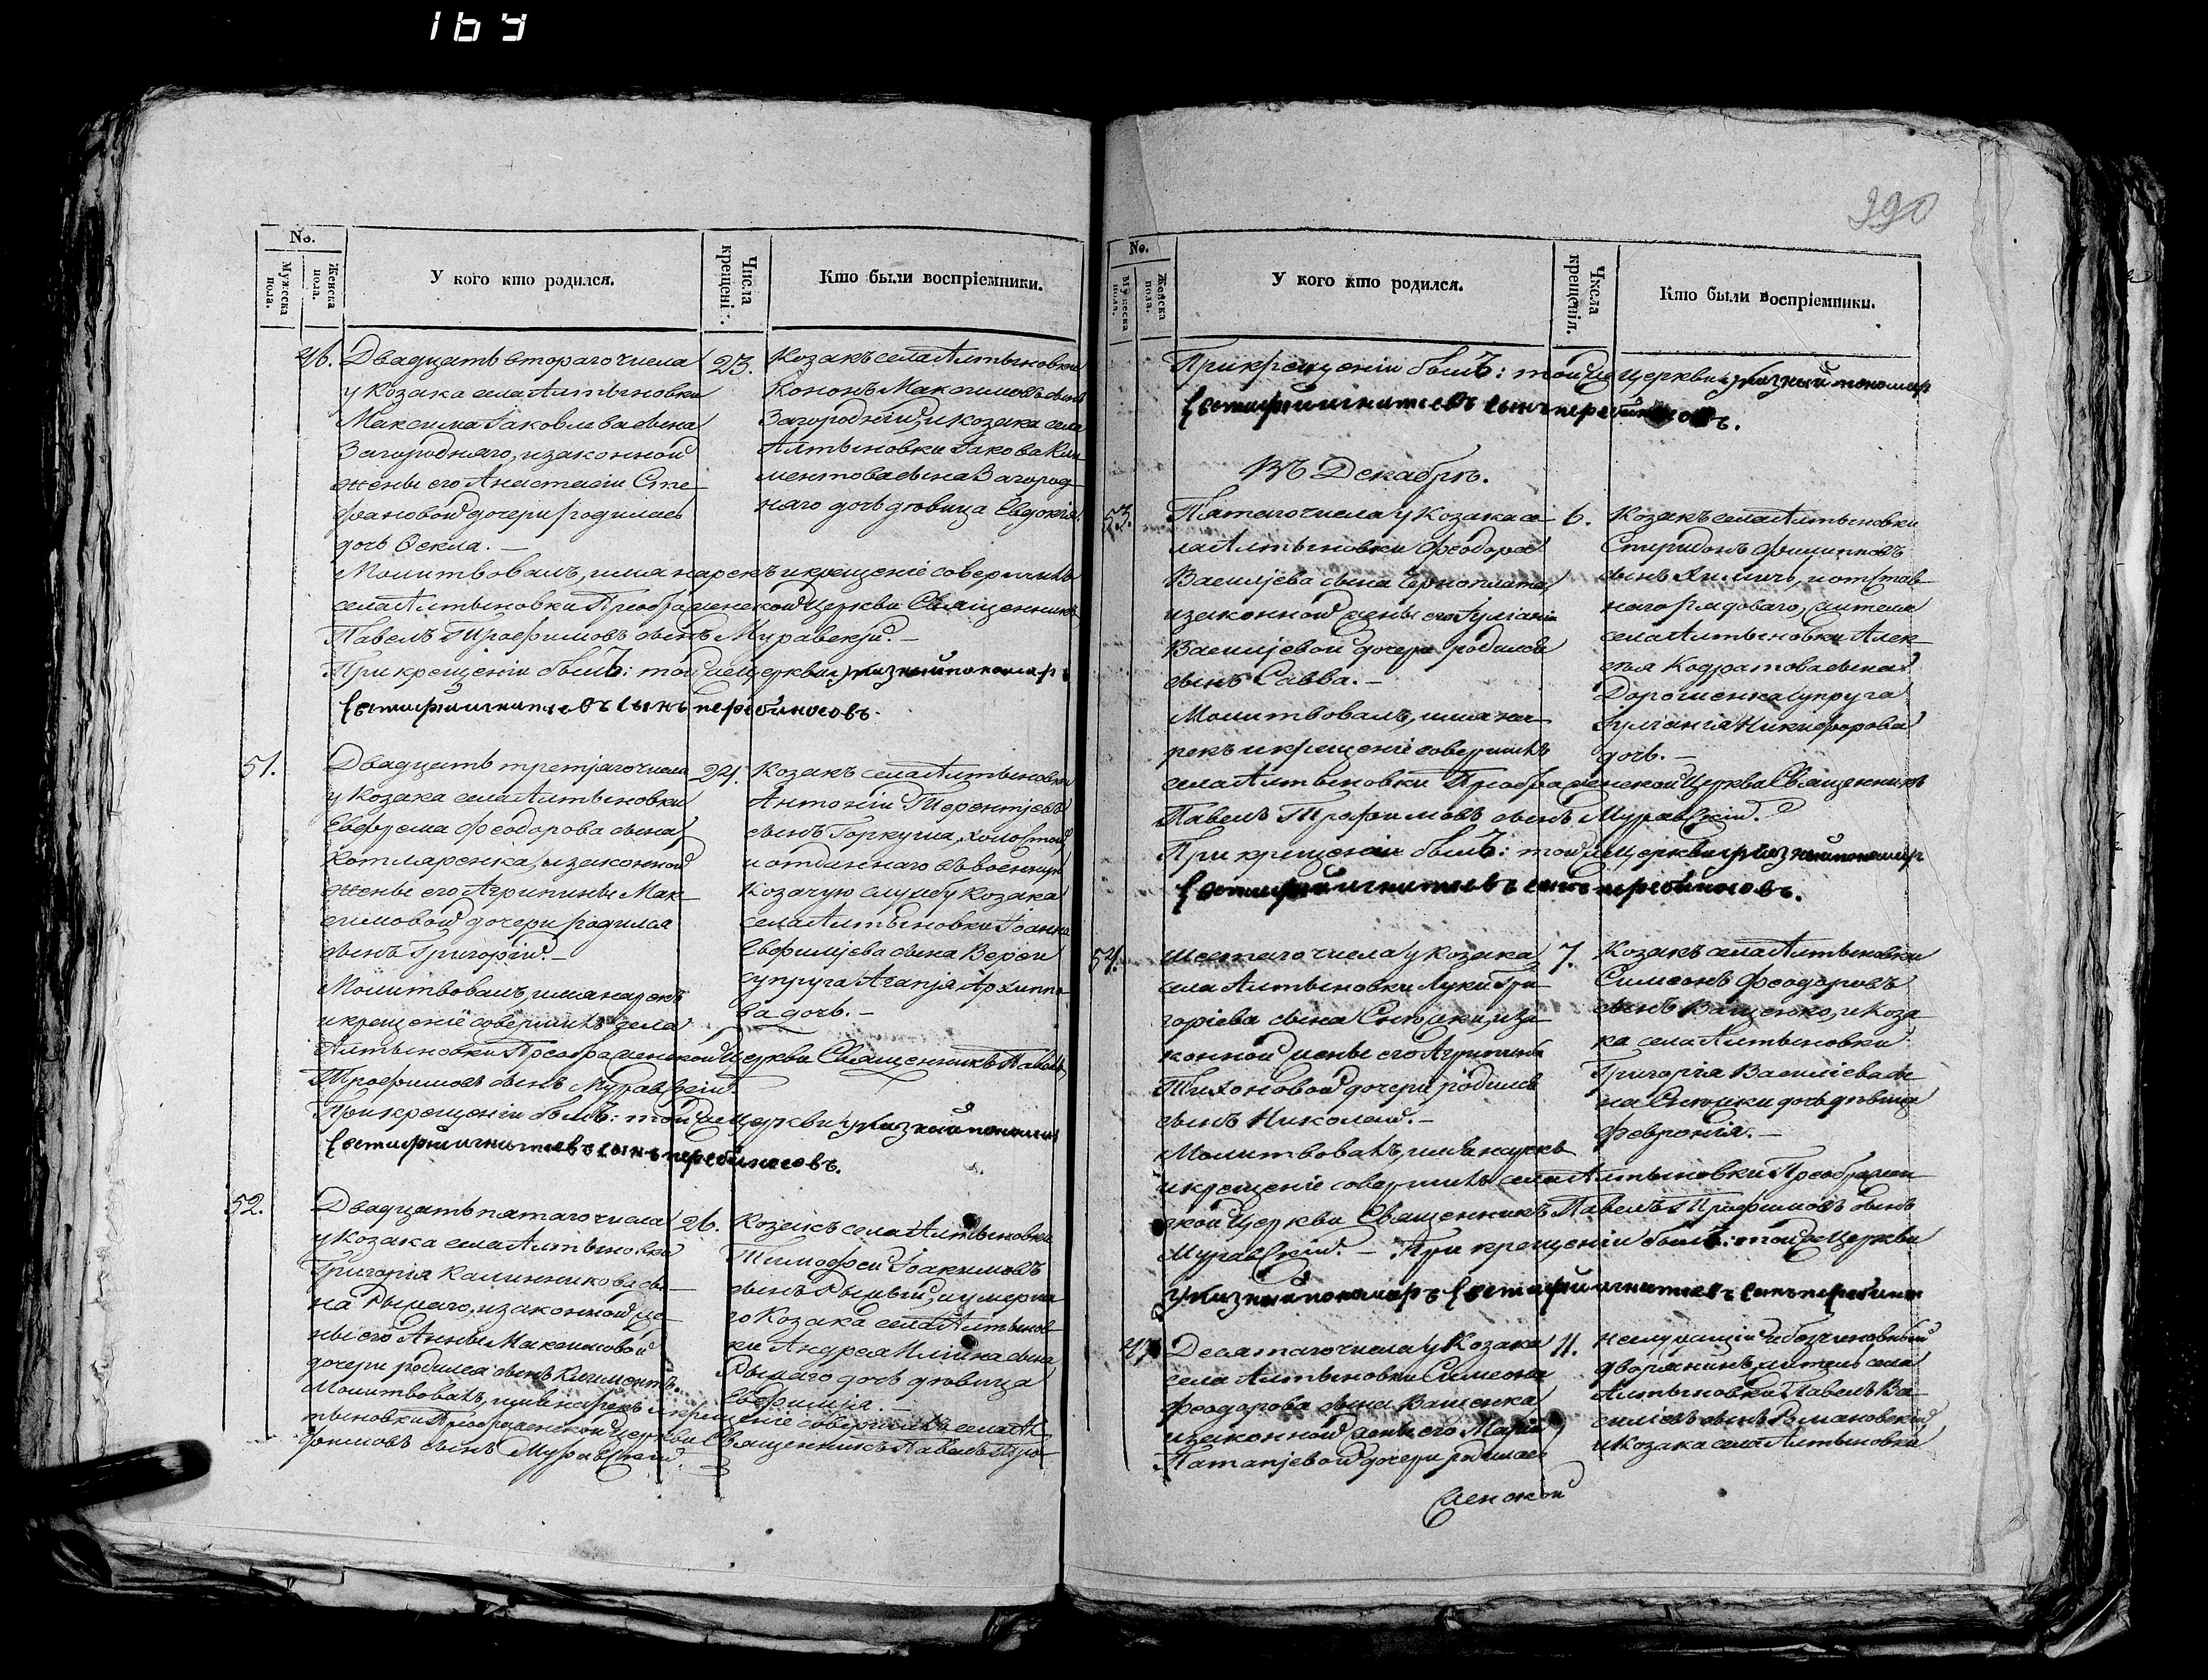 169
390
No.
Мужеска пола.
Женска пола.
У кого кто родился.
Числа крещенія.
Кто были воспріемники.
46.
Двадцать втораго числа
у Козака села Алтыновки
Максима Іаковлева сына
Загороднаго, и законной
жены его Анастасіи Сте-
фановой дочери родилась
дочь Ѳекла. —
23.
Козакъ села Алтыновки
Кононъ Максимовъ сынъ
Загородній, и Козака села
Алтыновки Іакова Кли-
ментова сына Загород-
наго дочь дѣвица Евдокія.
Молитвовалъ, имя нарекъ и крещеніе совершилъ
села Алтыновки Преображенской Церкви Священникъ
Павелъ Трофимовъ сынъ Муравскій. —
При крещеніи былъ: той же Церкви указный пономарь
Евстафій Игнатіевъ сынъ Перебиносовъ.
51.
Двадцать третјяго числа
у Козака села Алтыновки
Евфрема Феодорова сына
Котляренка, и законной
жены его Агрипины Мак-
симовой дочери родился
сынъ Григорій. —
24.
Козакъ села Алтыновки
Антоній Терентјевъ
сынъ Горкуша, холостой,
и отданнаго въ военную
Козачую службу Козака
села Алтыновки Іоанна
Евфимјева сына
супруга Агапја Архипо-
ва дочь. —
Молитвовалъ, имя нарекъ
и крещеніе совершилъ села
Алтыновки Преображенской Церкви Священникъ Павелъ
Трофимовъ сынъ Муравскій.
При крещеніи былъ: той же Церкви указный пономарь
Евстафій Игнатіевъ сынъ Перебиносовъ.
52.
Двадцать пятаго числа
у Козака села Алтыновки
Григорія Калинникова сы-
на Рыжаго, и законной же-
ны его Анны Максимовой
дочери родился сынъ Климентъ.
26.
Козакъ села Алтыновки
Тимофей Іоакимовъ
сынъ Рыжій, и умерша-
го Козака села Алтынов-
ки Андрея Иліина сына
Рыжаго дочь дѣвица
Евфимја. —
Молитвовалъ, имя нарекъ и крещеніе совершилъ села Ал-
тыновки Преображенской Церкви Священникъ Павелъ Тро-
фимовъ сынъ Муравскій.
No.
Мужеска пола.
Женска пола.
У кого кто родился.
Числа крещенія.
Кто были воспріемники.
При крещеніи былъ: той же Церкви указный пономарь
Евстафій Игнатіевъ сынъ Перебиносовъ.
Въ Декабрѣ.
53.
Пятаго числа у Козака се-
ла Алтыновки Феодора
Василјева сына Черноплата,
и законной жены его Іуліаніи
Василјевой дочери родился
сынъ Савва. —
6.
Козакъ села Алтыновки
Спиридонъ Филиповъ
сынъ и отстав-
наго рядоваго, жителя
села Алтыновки Алек-
сѣя Кодратова сына
Дорошенка супруга
Іуліанія Никифорова
дочь. —
Молитвовалъ, имя на-
рекъ и крещеніе совершилъ
села Алтыновки Преображенской Церкви Священникъ
Павелъ Трофимовъ сынъ Муравскій.
При крещеніи былъ: той же Церкви указный пономарь
Евстафій Игнатіевъ сынъ Перебиносовъ.
54.
Шестаго числа у Козака
села Алтыновки Луки Гри-
горіева сына и за-
конной жены его Агрипины
Тихоновой дочери родился
сынъ Николай. —
7.
Козакъ села Алтыновки
Симеонъ Феодоровъ
сынъ Ващенко, и Коза-
ка села Алтыновки
Григорія Василіева сы-
на дочь дѣвица
Февронія. —
Молитвовалъ, имя нарекъ
и крещеніе совершилъ села Алтыновки Преображен-
ской Церкви Священникъ Павелъ Трофимовъ сынъ
Муравскій. — При крещеніи былъ: той же Церкви
указный пономарь Евстафій Игнатіевъ сынъ Перебинос
47.
Десятаго числа у Козака
села Алтыновки Симеона
Феодорова сына Ващенка
и законной жены его Маріи
Патапјевой дочери родилась
11.
Неслужащій и безчиновный
дворянинъ, житель села
Алтыновки Павелъ Ва-
силіевъ сынъ Романовскій,
и Козака села Алтыновки